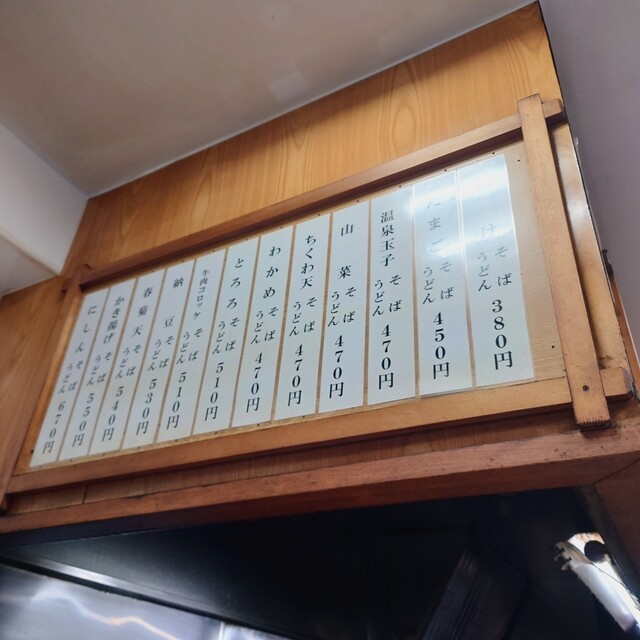 けそば うどん 380円
たまごそば うどん 450円
温泉玉子そば うどん 470円
山菜そば うどん 470円
ちくわ天そば うどん 470円
わかめそば うどん 470円
とろろそば うどん 510円
牛肉コロッケそば うどん 510円
納豆そば うどん 530円
春菊天そば うどん 540円
かき揚げそば うどん 550円
にしんそば うどん 670円